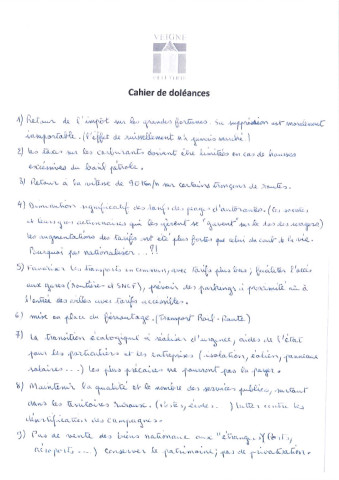 VEIGNE
Cahier de doléances
1) Retour de l'impôt sur les grandes fortunes. Sa suppression est moralement
insupportable. (l'effet de ruissellement n'a jamais marché !
2) Les taxes sur les carburants doivent être limitées en cas de hausses
excessives du baril pétrole.
3) Retour à la vitesse de 90 Km/h sur certains tronçons de routes.
4) Diminution significatif des tarifs des péages d'autoroutes. (les sociétés
et leurs gros actionnaires qui les gèrent se "gavent" sur le dos des usagers)
les augmentations des tarifs ont été plus fortes que celui du coût de la vie.
Pourquoi pas nationaliser...?!!
5) Favoriser les transports en commun, avec tarifs plus bas ; faciliter l'accès
aux gares (Routière et SNCF), prévoir des parkings à proximité ou à
l'entrée des villes avec tarifs accessibles.
6) mise en place du ferroutage. (Transport Rail-Route)
7) La transition écologique à réaliser d'urgence, aides de l'état
pour les particuliers et les entreprises (isolation, éolien, panneaux
solaires ....) les plus précaires ne pourront pas la payer.
8) Maintenir la qualité et le nombre des services publics, surtout
dans les territoires ruraux. (Poste, écoles...) lutter contre les
désertification des campagnes.
9) Pas de vente des biens nationaux aux "étrangers"
Aéroports ....) conserver le patrimoine ; pas de privatisation.